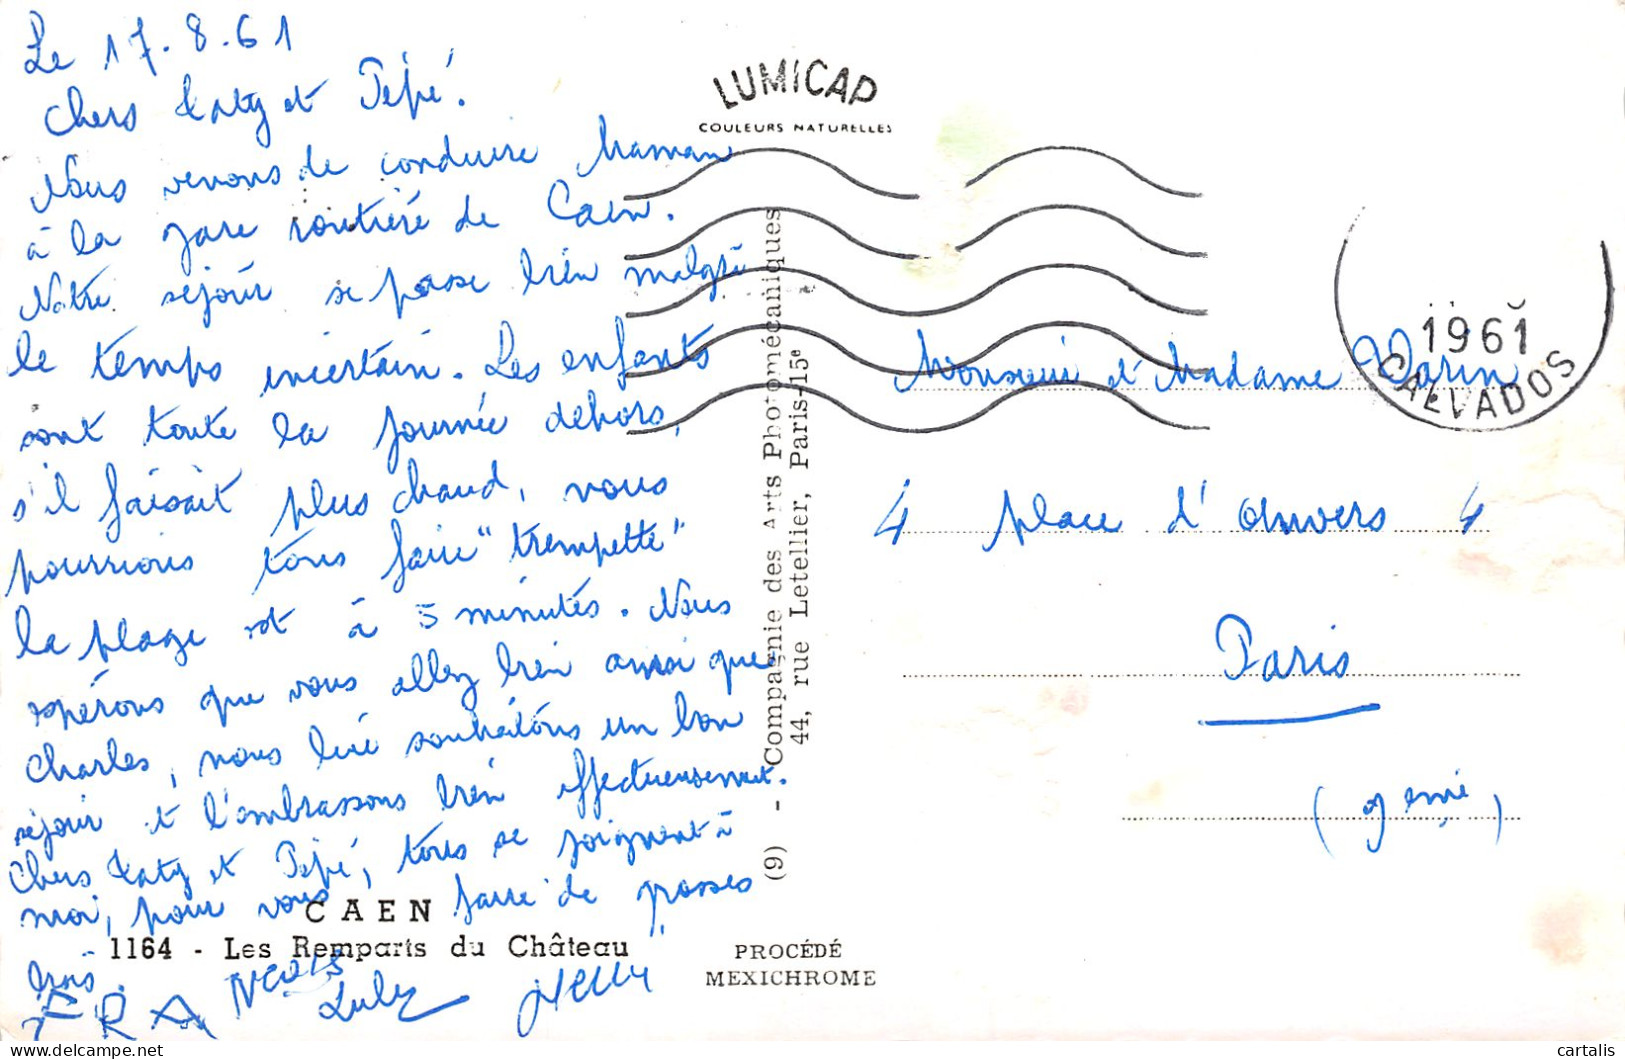 Le 17.8.61
Chers Katy et Pépé.
Nous venons de conduire Maman
à la gare routière de Caen.
Notre séjour se passe bien malgré
le temps incertain. Les enfants
sont toute la journée dehors,
s'il faisait plus chaud, nous
pourrions tous faire "trempette"
la plage est à 5 minutes. Nous
espérons que vous allez bien ainsi que
Charles, nous lui souhaitons un bon
séjour et l'embrassons bien affectueusement.
Chers Katy et Pépé, tous se joignent à
moi, pour vous faire de grosses
bises.
FRANCOIS
Nelly
CAEN
1164 - Les Remparts du Château
LUMICAP
COULEURS NATURELLES
(9) - Compagnie des Arts Photomécaniques
44, rue Letellier, Paris-15e
PROCÉDÉ
MEXICHROME
1961
CALVADOS
Monsieur et Madame Varin
4 place d'Anvers 4
Paris
(9 eme)
cartalis